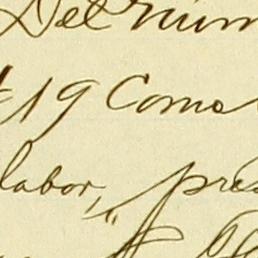 Delrium
19 Coma
labor," pres